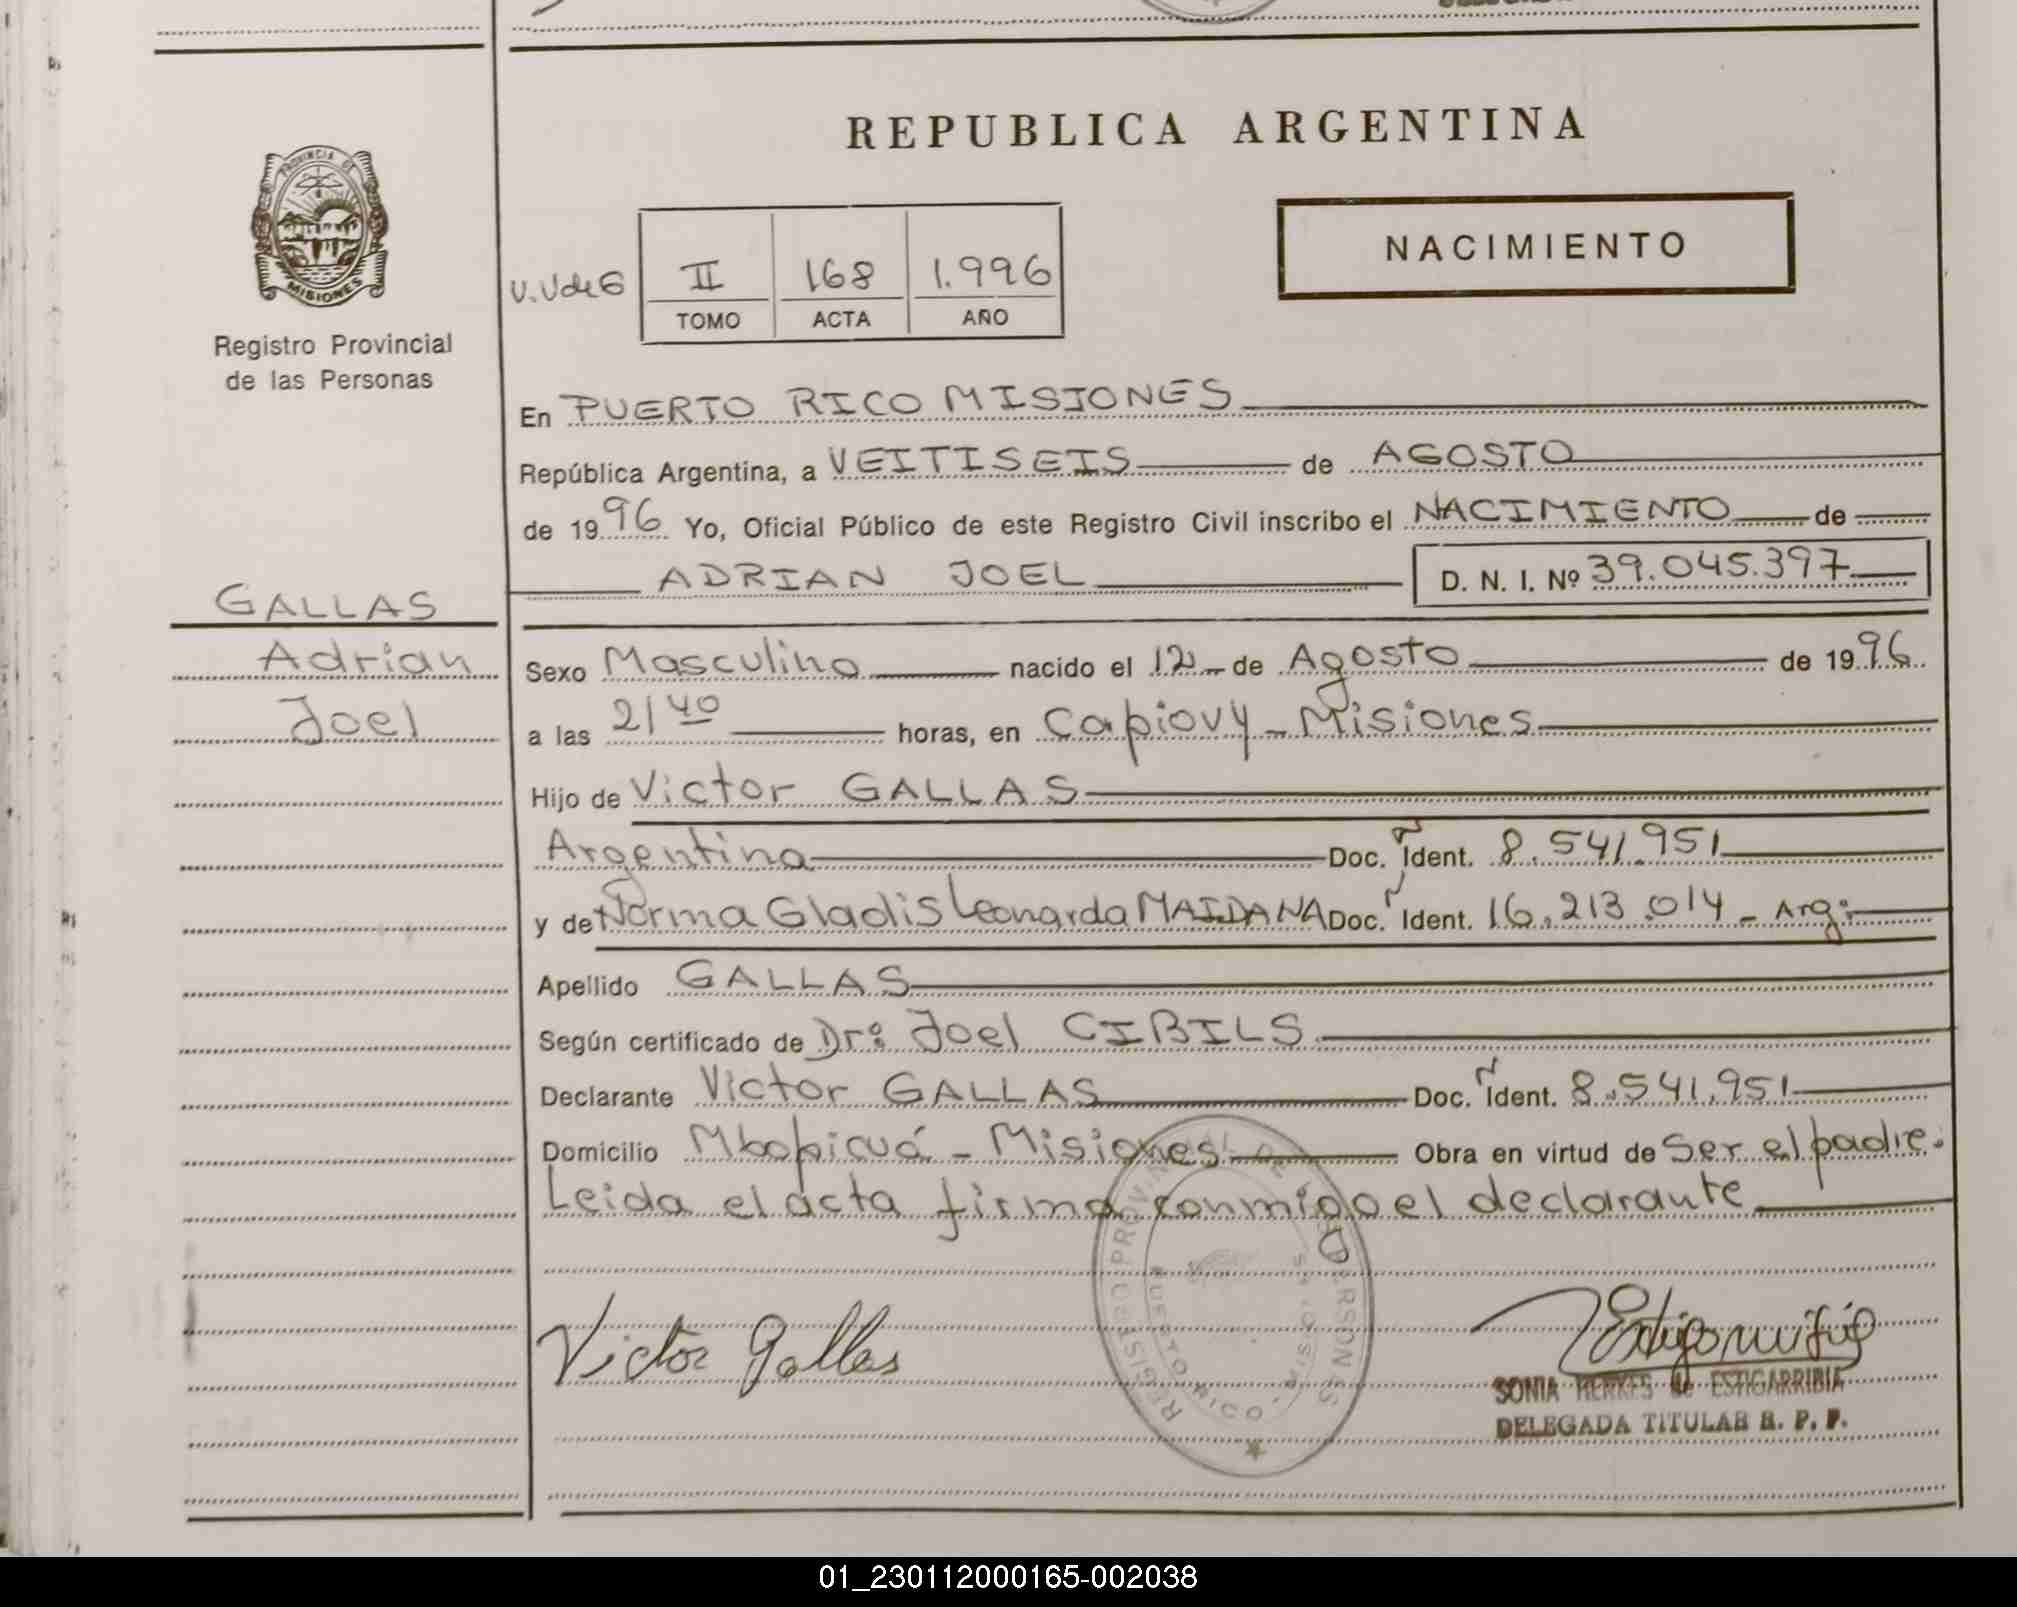 REPUBLICA ARGENTINA
PROVINCIA DE
MISIONES
NACIMIENTO
II 168 1.996
TOMO ACTA AÑO
Registro Provincial
de las Personas
En PUERTO RICO MISIONES
República Argentina, a VEITISEIS de AGOSTO
de 1996 Yo, Oficial Público de este Registro Civil inscribo el NACIMIENTO de
ADRIAN JOEL D. N. I. Nº 39.045.397
GALLAS
Adrian
Joel
Sexo Masculino nacido el 12 de Agosto de 1996
a las 21 40 horas, en Capiovy - Misiones
Hijo de Victor GALLAS
Argentino Doc. Ident. 8.541.951
y de Norma Gladis Leonarda MAIDANA Doc. Ident. 16.213.014 - Arg:
Apellido GALLAS
Según certificado de Dr: Joel CIBILS
Declarante Victor GALLAS Doc. Ident. 8.541.951
Domicilio Mbopicuá - Misiones Obra en virtud de Ser el padre.
Leida el acta firma conmigo el declarante
Victor Gallas
SONIA HERKES de ESTIGARRIBIA
DELEGADA TITULAR R. P. P.
01_230112000165-002038